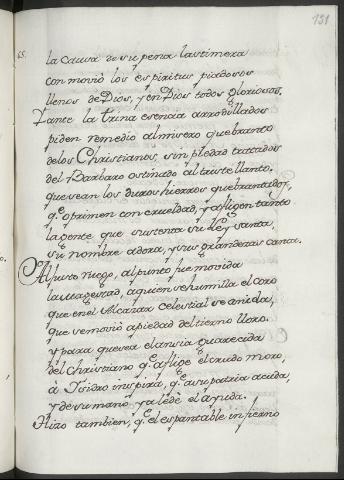 151
65.
la causa de su pena lastimera
conmovió los espiritus piadosos
llenos de Dios, y en Dios todos gloriosos.
Y ante la trina esencia arrodillados
piden remedio al misero quebranto
delos Christianos, sin piedad tratados
del Barbaro ostinado al triste llanto.
que sean los duros hierros quebrantados,
q.e oprimen con crueldad, y afligen tanto
la gente que sustenta su ley santa,
su nombre adora, y sus grandezas canta.
Al justo ruego, al punto fue movida
la Magestad, aquien se humilla el coro
que en el Alcazar celestial se anida,
que se movió a piedad del tierno lloro.
y para que sea el ansia guarecida
del christiano q.e aflige el crudo moro,
à Isidro inspira, q.e asu patria acuda,
y de su mano ya le dè el ayuda.
Hizo tambien, q.e el espantable infierno